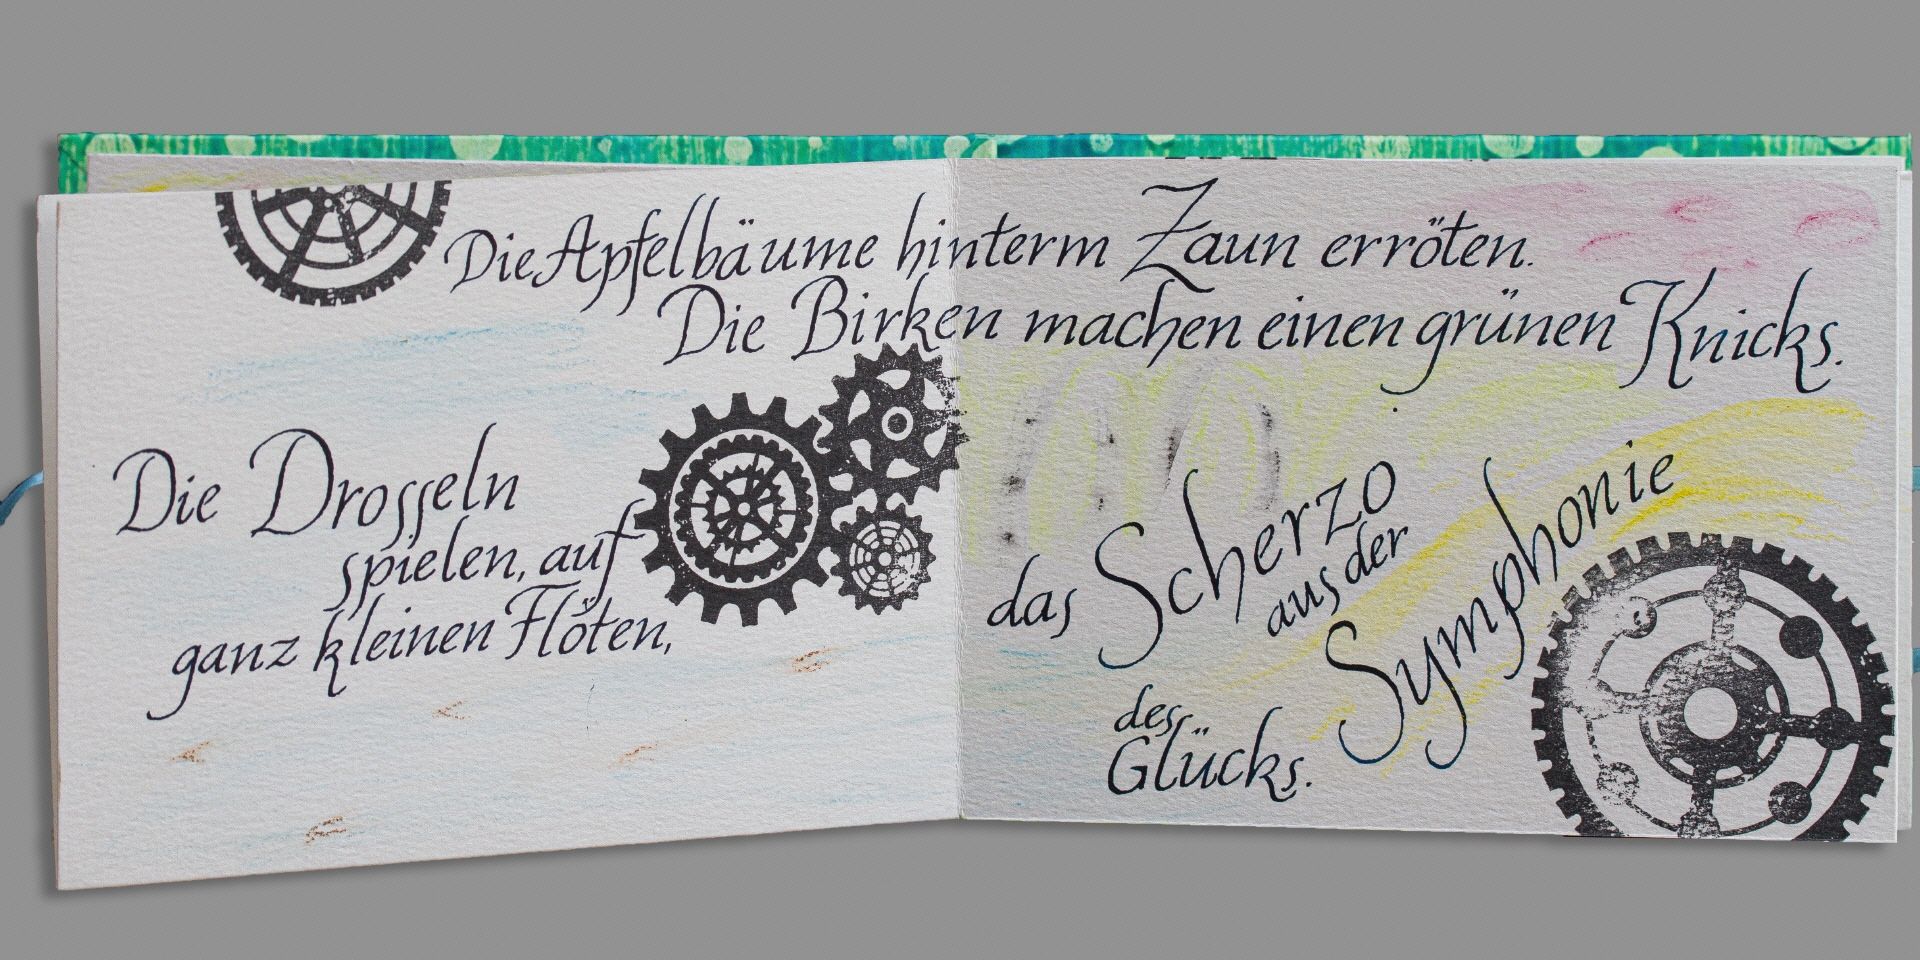 Die Apfelbäume hinterm Zaun erröten.
Die Birken machen einen grünen Knicks.
Die Drosseln
spielen, auf
ganz kleinen Flöten,
das Scherzo
aus der
Symphonie
des
Glücks.